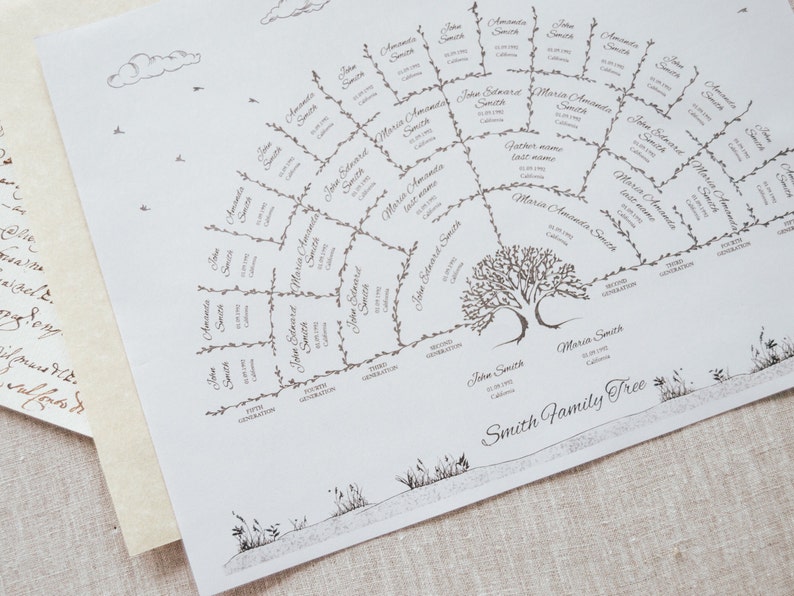 John
Smith
01.09.1992
California
Amanda
Smith
01.09.1992
California
John
Smith
01.09.1992
California
Amanda
Smith
01.09.1992
California
John
Smith
01.09.1992
California
Amanda
Smith
01.09.1992
California
John
Smith
01.09.1992
California
Amanda
Smith
01.09.1992
California
John
Smith
01.09.1992
California
Maria Amanda
Smith
01.09.1992
California
John
Smith
01.09.1992
California
Amanda
Smith
01.09.1992
California
John
Smith
01.09.1992
California
Amanda
Smith
01.09.1992
California
John
Smith
01.09.1992
California
John Edward
Smith
01.09.1992
California
Maria Amanda
Smith
01.09.1992
California
John Edward
Smith
01.09.1992
California
Maria Amanda
Smith
01.09.1992
California
John Edward
Smith
01.09.1992
California
Maria Amanda
Smith
01.09.1992
California
John Edward
Smith
01.09.1992
California
Maria Amanda
Smith
01.09.1992
California
John Edward
Smith
01.09.1992
California
Maria Amanda
last name
01.09.1992
California
Father name
last name
01.09.1992
California
Maria Amanda
last name
01.09.1992
California
John Edward Smith
01.09.1992
California
Maria Amanda Smith
01.09.1992
California
FIFTH
GENERATION
FOURTH
GENERATION
THIRD
GENERATION
SECOND
GENERATION
SECOND
GENERATION
THIRD
GENERATION
FOURTH
GENERATION
John Smith
01.09.1992
California
Maria Smith
01.09.1992
California
Smith Family Tree